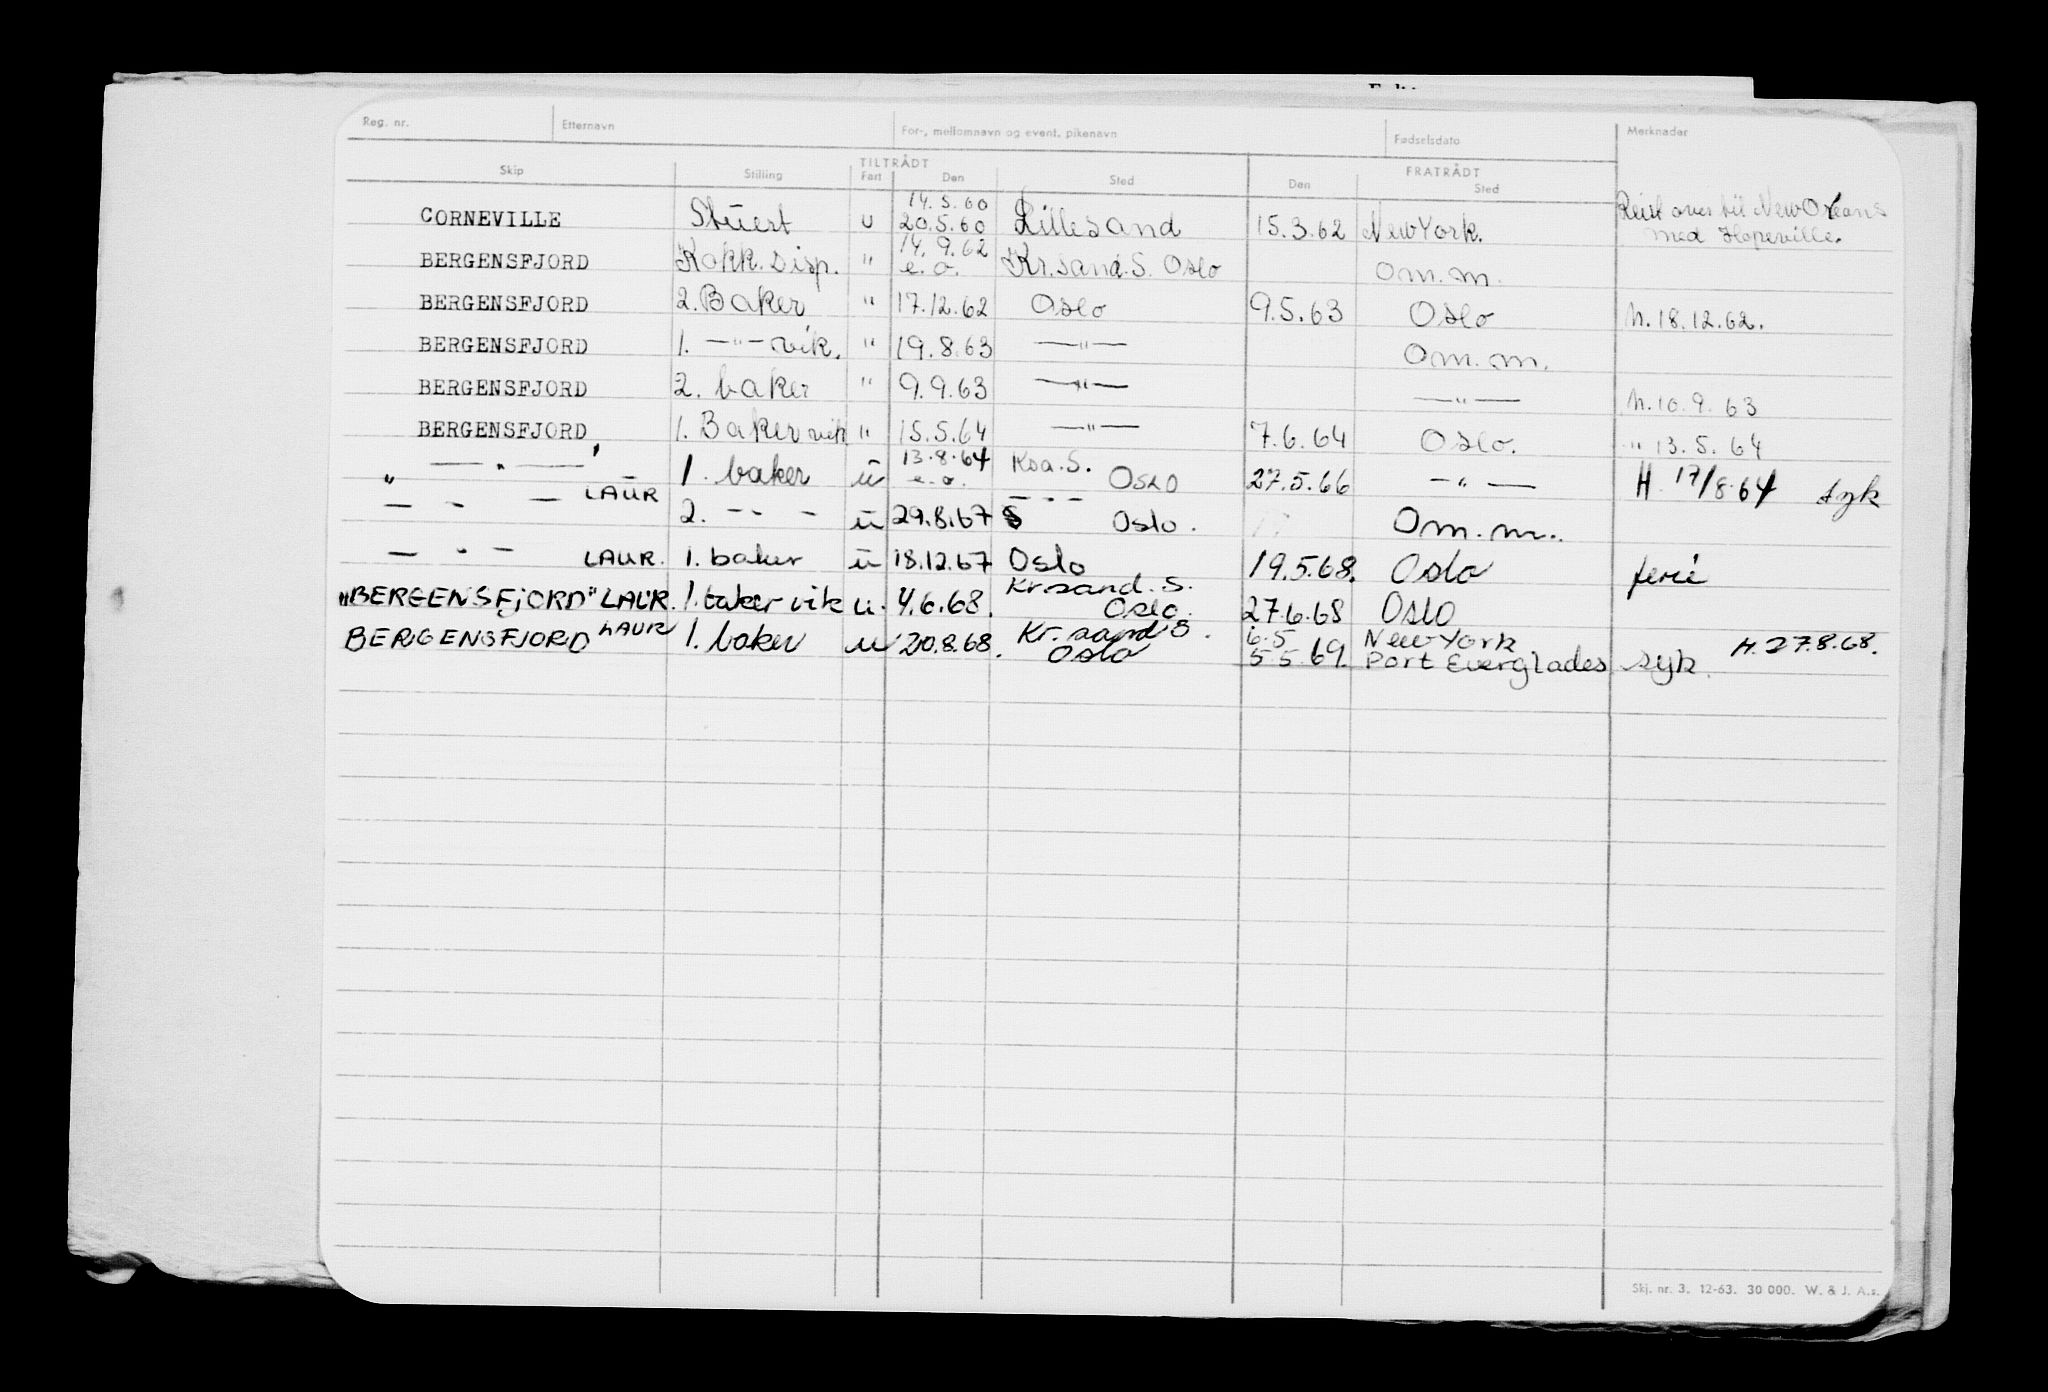 Reg. nr. Etternavn For-, mellomnavn og event. pikenavn Fødselsdato Merknader
TILTRÅDT FRATRÅDT
Skip Stilling Fart Den Sted Den Sted
14.5.60 Reist over til New Orleans
CORNEVILLE Stuert u 20.5.60 Lillesand 15.3.62 New York. med Hopeville.
14.9.62
BERGENSFJORD Kokk. Disp. " e.o. Kr.sand.S. Oslo Om.m.
BERGENSFJORD 2. Baker " 17.12.62 Oslo 9.5.63 Oslo h. 18.12.62.
BERGENSFJORD 1. —"— vik. " 19.8.63 —"— Om.m.
BERGENSFJORD 2. baker " 9.9.63 —"— —"— h. 10.9.63
BERGENSFJORD 1. Baker vik " 15.5.64 —"— 7.6.64 Oslo. " 13.5.64
13.8.64 Ksa.S.
" — " — 1. baker ü e.o. Oslo 27.5.66 —"— H. 17/8.64 syk
— - — LAUR 2. - - - ü 29.8.67 - - - Oslo. Om.m.
— - — LAUR. 1. baker ü 18.12.67 Oslo 19.5.68. Oslo ferie
Kr.sand.S.
"BERGENSFJORD" LAUR. 1. baker vik u. 4.6.68. Oslo. 27.6.68 Oslo
BERGENSFJORD LAUR 1. baker u 20.8.68. Kr.sand S. 6.5 New York H. 27.8.68.
Oslo 5.5.69. Port Everglades syk.
Skj. nr. 3. 12-63. 30 000. W. & J. A.s.